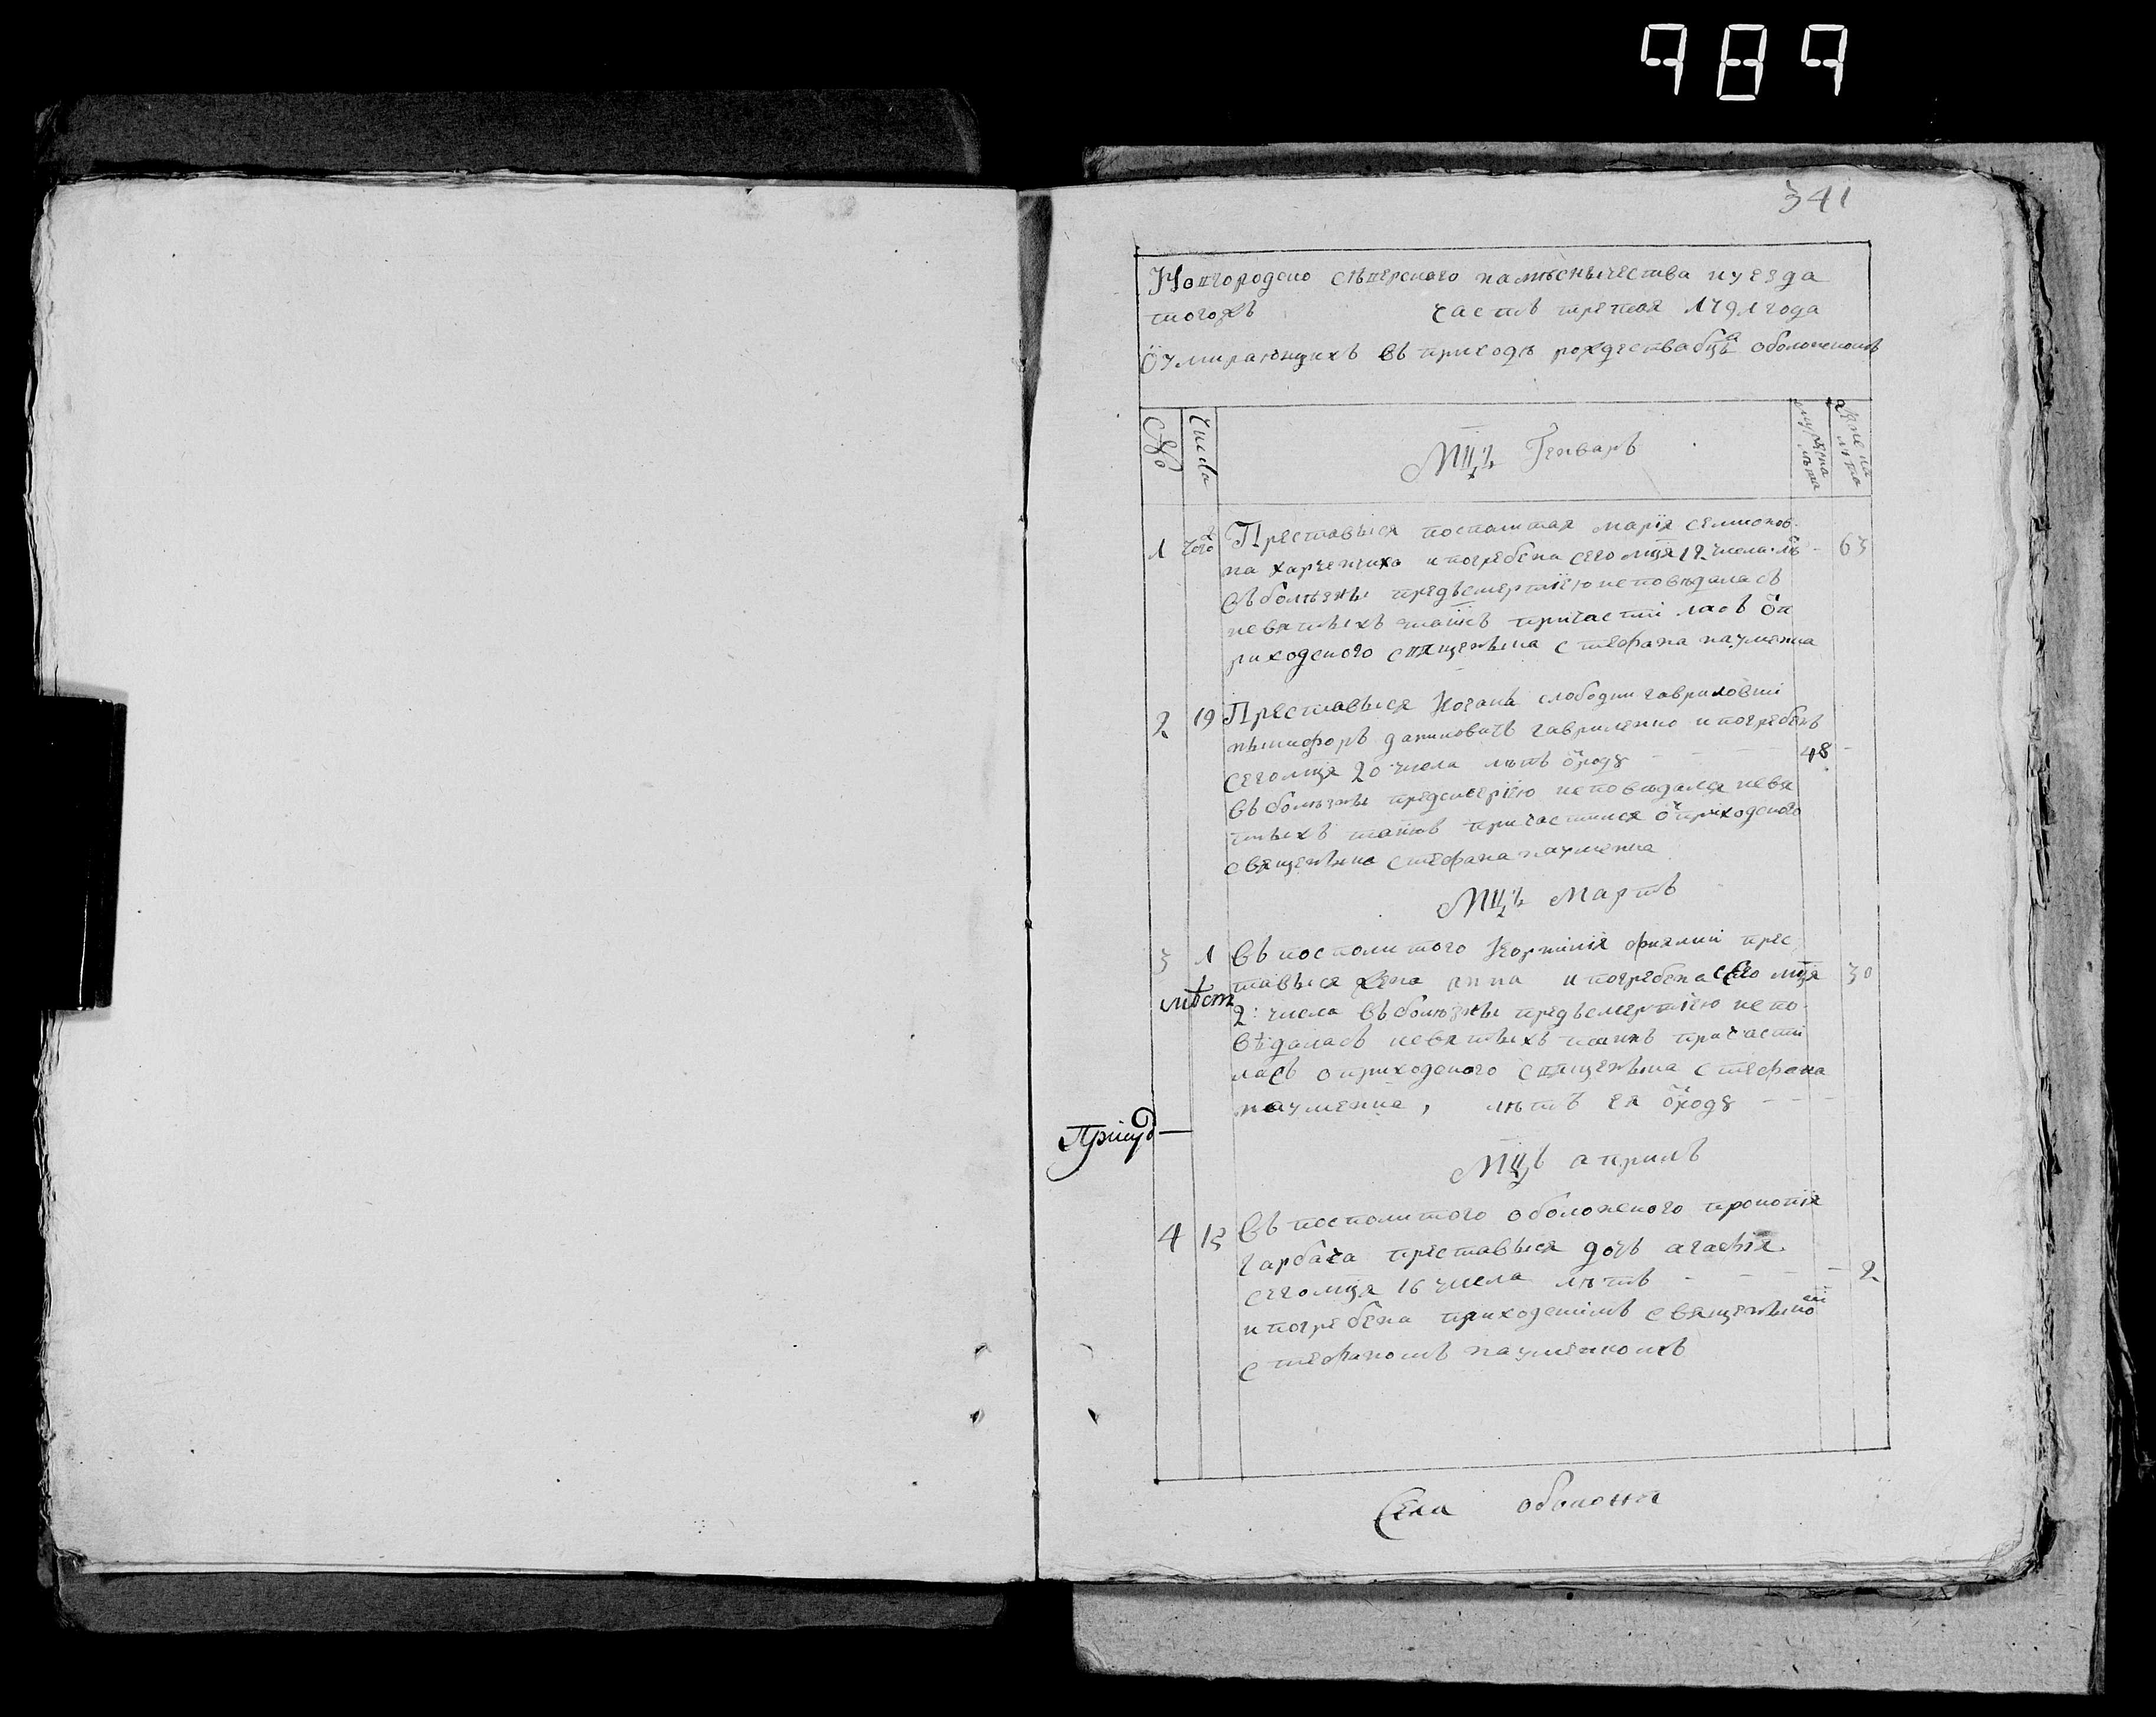 989
341
Новгородско сѣверского намѣсничества и уезда
тогожъ часть третая 1791 года
Ѡ умирающихъ въ приходѣ рождества бцы оболонскомъ
№ Числа Мцъ Генварь мужеска лѣта женска лѣта
1 2 Преставися посполитая марїя семионов
на харченкика и погребена сего мця числа лѣ 63
въ болѣзны предъ смертїею исповѣдалась
и свѧтыхъ таинъ причастилась ѿ п
риходского священъика стефана науменка
2 19 Преставися козакъ слободки гавриловки
никифоръ даниловичъ гавриленко и погребенъ
сего мця 20 числа лѣтъ ѿ роду 48
въ болѣзны пред смертїею исповѣдался и свя
тыхъ таинъ причастился ѿ приходского
священъика стефана науменка
Мцъ Мартъ
3 1 въ посполитого прес
тавися жена анна и погребена сего мця 30
мѣст
2: числа въ болѣзны предъ смертїею испо
вѣдалась и святыхъ таинъ причасти
лась ѿ приходского священъика стефана
науменка, лѣтъ ея ѿ роду
Мцъ априль
4 15 въ посполитого оболонского прокопїя
гарбача преставися дочь агафїя
сего мця 16 числа лѣтъ 2
и погребена приходскимъ священъико
стефаномъ науменкомъ
Села оболоння